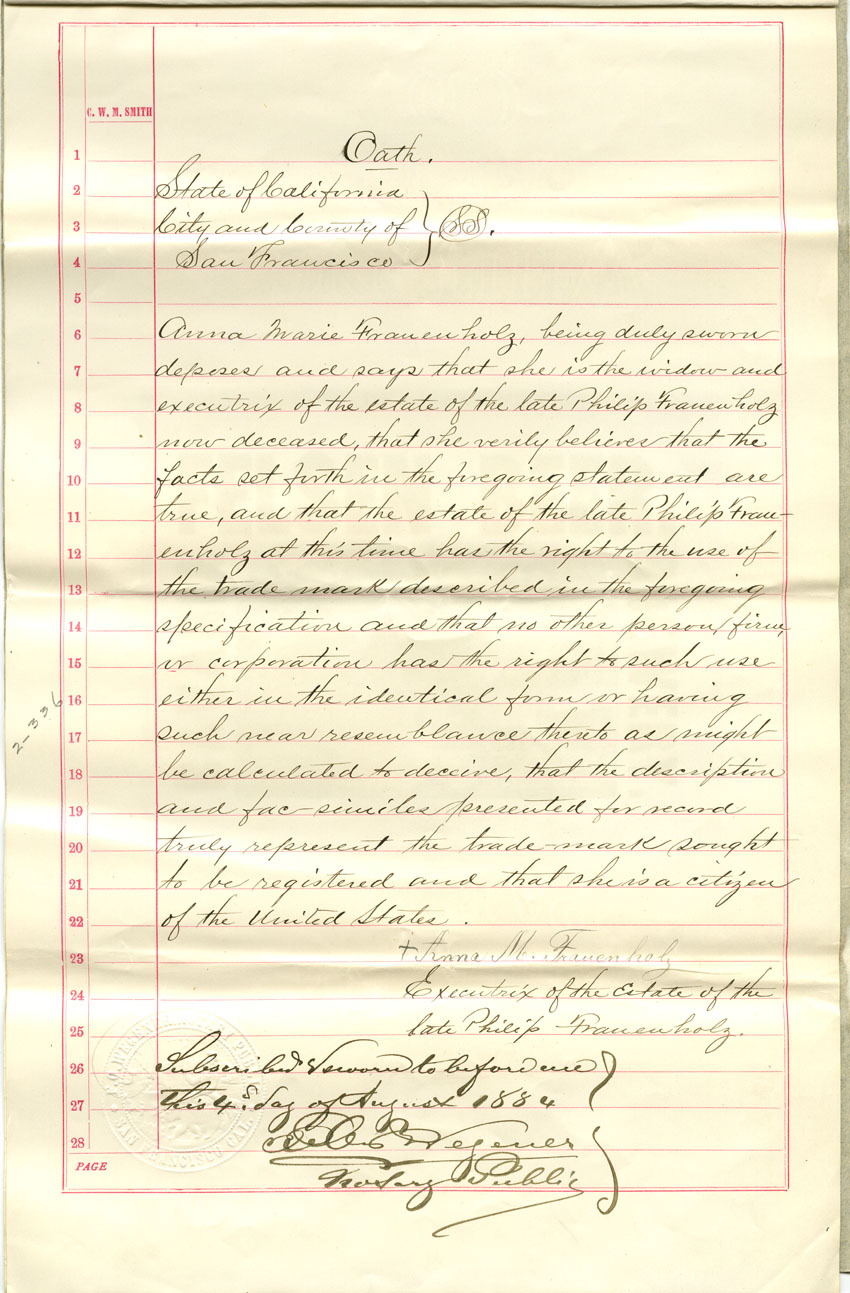 C. W. M. SMITH
1 Oath.
2 State of California
3 City and County of } SS.
4 San Francisco
5
6 Anna Marie Frauenholz, being duly sworn
7 deposes and says that she is the widow and
8 executrix of the estate of the late Philip Frauenholz
9 now deceased, that she verily believes that the
10 facts set forth in the foregoing statement are
11 true, and that the estate of the late Philip Frau-
12 enholz at this time has the right to the use of
13 the trade mark described in the foregoing
14 specification and that no other person, firm,
15 or corporation has the right to such use
16 either in the identical form or having
17 such near resemblance thereto as might
18 be calculated to deceive, that the description
19 and fac-similes presented for record
20 truly represent the trade-mark sought
21 to be registered and that she is a citizen
22 of the United States.
23 + Anna M. Frauenholz
24 Executrix of the Estate of the
25 late Philip Frauenholz.
26 Subscribed & sworn to before me
27 this 4 day of August 1884
28 Wegener
Notary Public
PAGE
2-336
SAN FRANCISCO CAL.